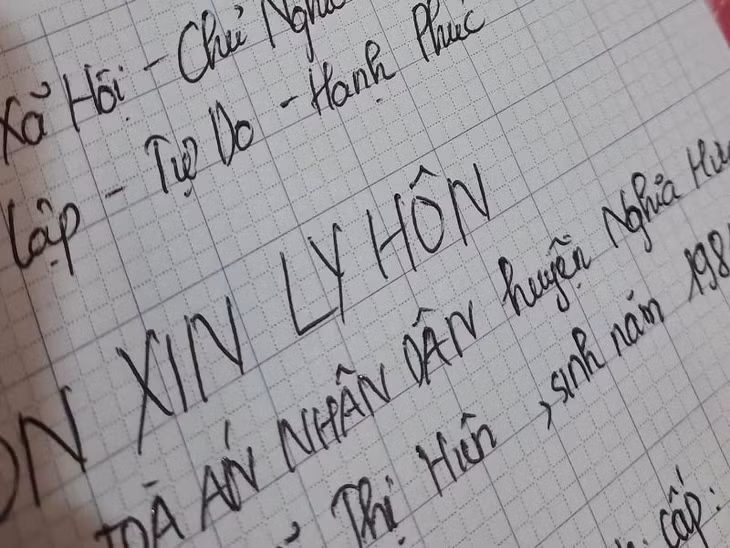 Xã Hội - Chủ Nghĩa
Lập - Tự Do - Hạnh Phúc
ƠN XIN LY HÔN
TOÀ ÁN NHÂN DÂN huyện Nghĩa Hư
Thị Hiên, sinh năm 198
cấp: